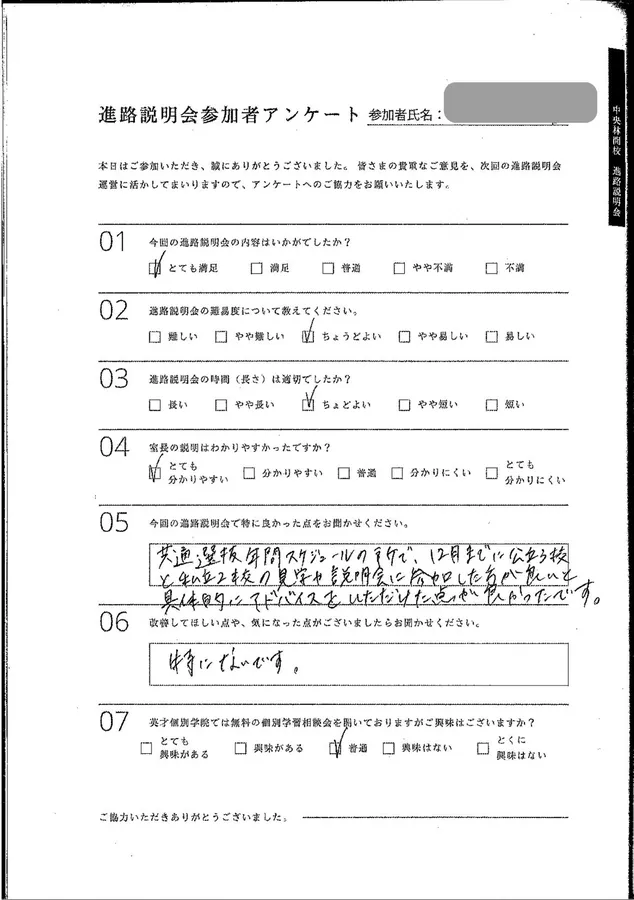 進路説明会参加者アンケート 参加者氏名：
中央林間校 進路説明会
本日はご参加いただき、誠にありがとうございました。 皆さまの貴重なご意見を、次回の進路説明会
運営に活かしてまいりますので、アンケートへのご協力をお願いいたします。
01 今回の進路説明会の内容はいかがでしたか？
とても満足 満足 普通 やや不満 不満
02 進路説明会の難易度について教えてください。
難しい やや難しい ちょうどよい やや易しい 易しい
03 進路説明会の時間（長さ）は適切でしたか？
長い やや長い ちょどよい やや短い 短い
04 室長の説明はわかりやすかったですか？
とても
分かりやすい 分かりやすい 普通 分かりにくい とても
分かりにくい
05 今回の進路説明会で特に良かった点をお聞かせください。
共通選抜年間スケジュールの中で、12月までに公立3校
と私立2校の見学や説明会に参加した方が良いと
具体的にアドバイスをいただけた点が良かったです。
06 改善してほしい点や、気になった点がございましたらお聞かせください。
特にないです。
07 英才個別学院では無料の個別学習相談会を開いておりますがご興味はございますか？
とても
興味がある 興味がある 普通 興味はない とくに
興味はない
ご協力いただきありがとうございました。